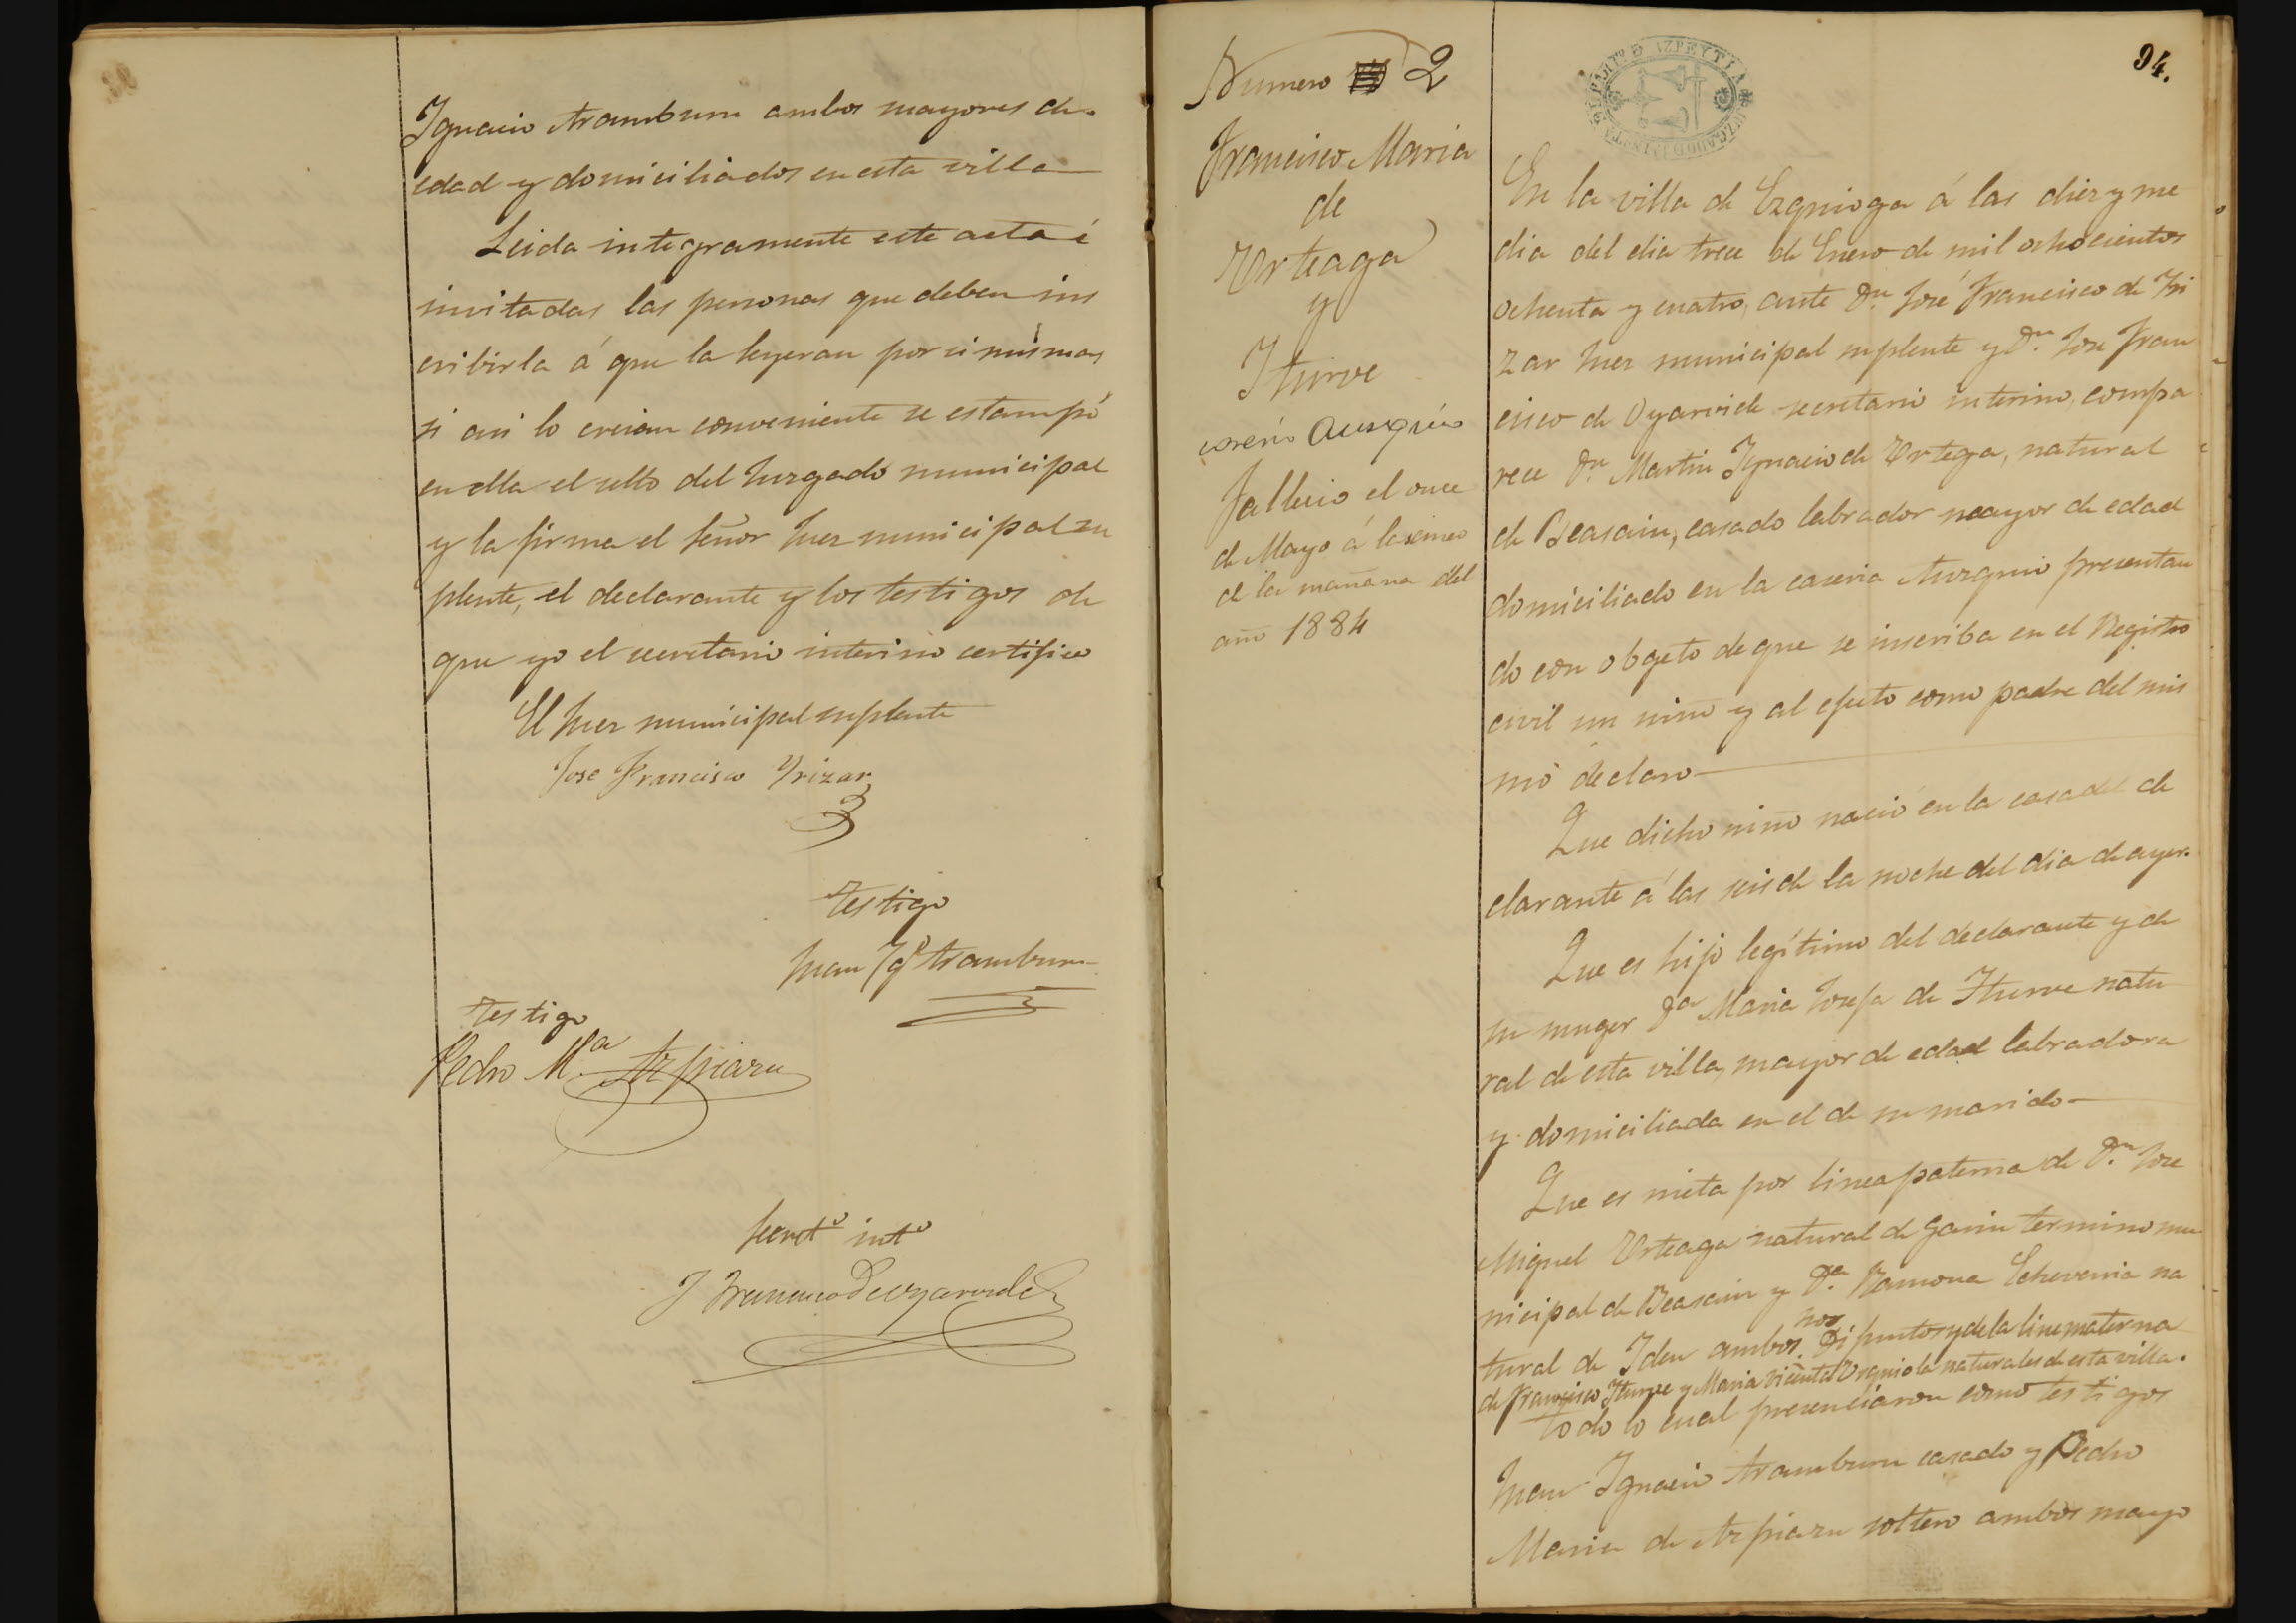 Ignacio Aramburu ambos mayores de
edad y domiciliados en esta villa
Leida integramente este acta é
invitadas las personas que deben ins
cribirla á que la leyeran por si mismas
si asi lo creian conveniente se estampó
en ella el sello del Juzgado municipal
y la firma el Señor Juez municipal su
plente, el declarante y los testigos de
que yo el secretario interino certifico
El Juez municipal suplente
Jose Francisco Yrizar
Testigo
Juan Ygº Aramburu
Testigo
Pedro M.ª Azpiazu
Secretº intº
J Francisco De Oyarvide
Numero 2
Francisco Maria
de
Urteaga
y
Iturve
caserio Ausquio
Fallecio el once
de Mayo á las cinco
de la mañana del
año 1884
94.
PARTº D AZPEYTIA
JUZGADO
En la villa de Ezquioga á las diez y me
dia del dia trece de Enero de mil ochocientos
ochenta y cuatro, ante Dn. José Francisco de Iri
zar Juez municipal suplente y Dn. Jose Fran
cisco de Oyarvide secretario interino, compa
rece Dn. Martin Ignacio de Urtega, natural
de Beasain, casado labrador mayor de edad
domiciliado en la caseria Auzquio presentan
do con obgeto de que se inscriba en el Registro
civil un niño y al efecto como padre del mis
mo declaro
Que dicho niño nació en la casa del de
clarante á las seis de la noche del dia de ayer.
Que es hijo legítimo del declarante y de
su muger Da Maria Josefa de Iturve natu
ral de esta villa, mayor de edad labradora
y domiciliada en el de su marido
Que es nieta por linea paterna de Dn. Jose
Miguel Urteaga natural de Garin termino mu
nicipal de Beasain y Da. Ramona Echeverria na
tural de Iden ambos Difuntos y de la line materna
de Francisco Iturve y Maria Vicenta Urquiola naturales de esta villa.
Todo lo cual presenciaron como testigos
Juan Ignacio Aramburu casado y Pedro
Maria de Azpiazu soltero ambos mayo